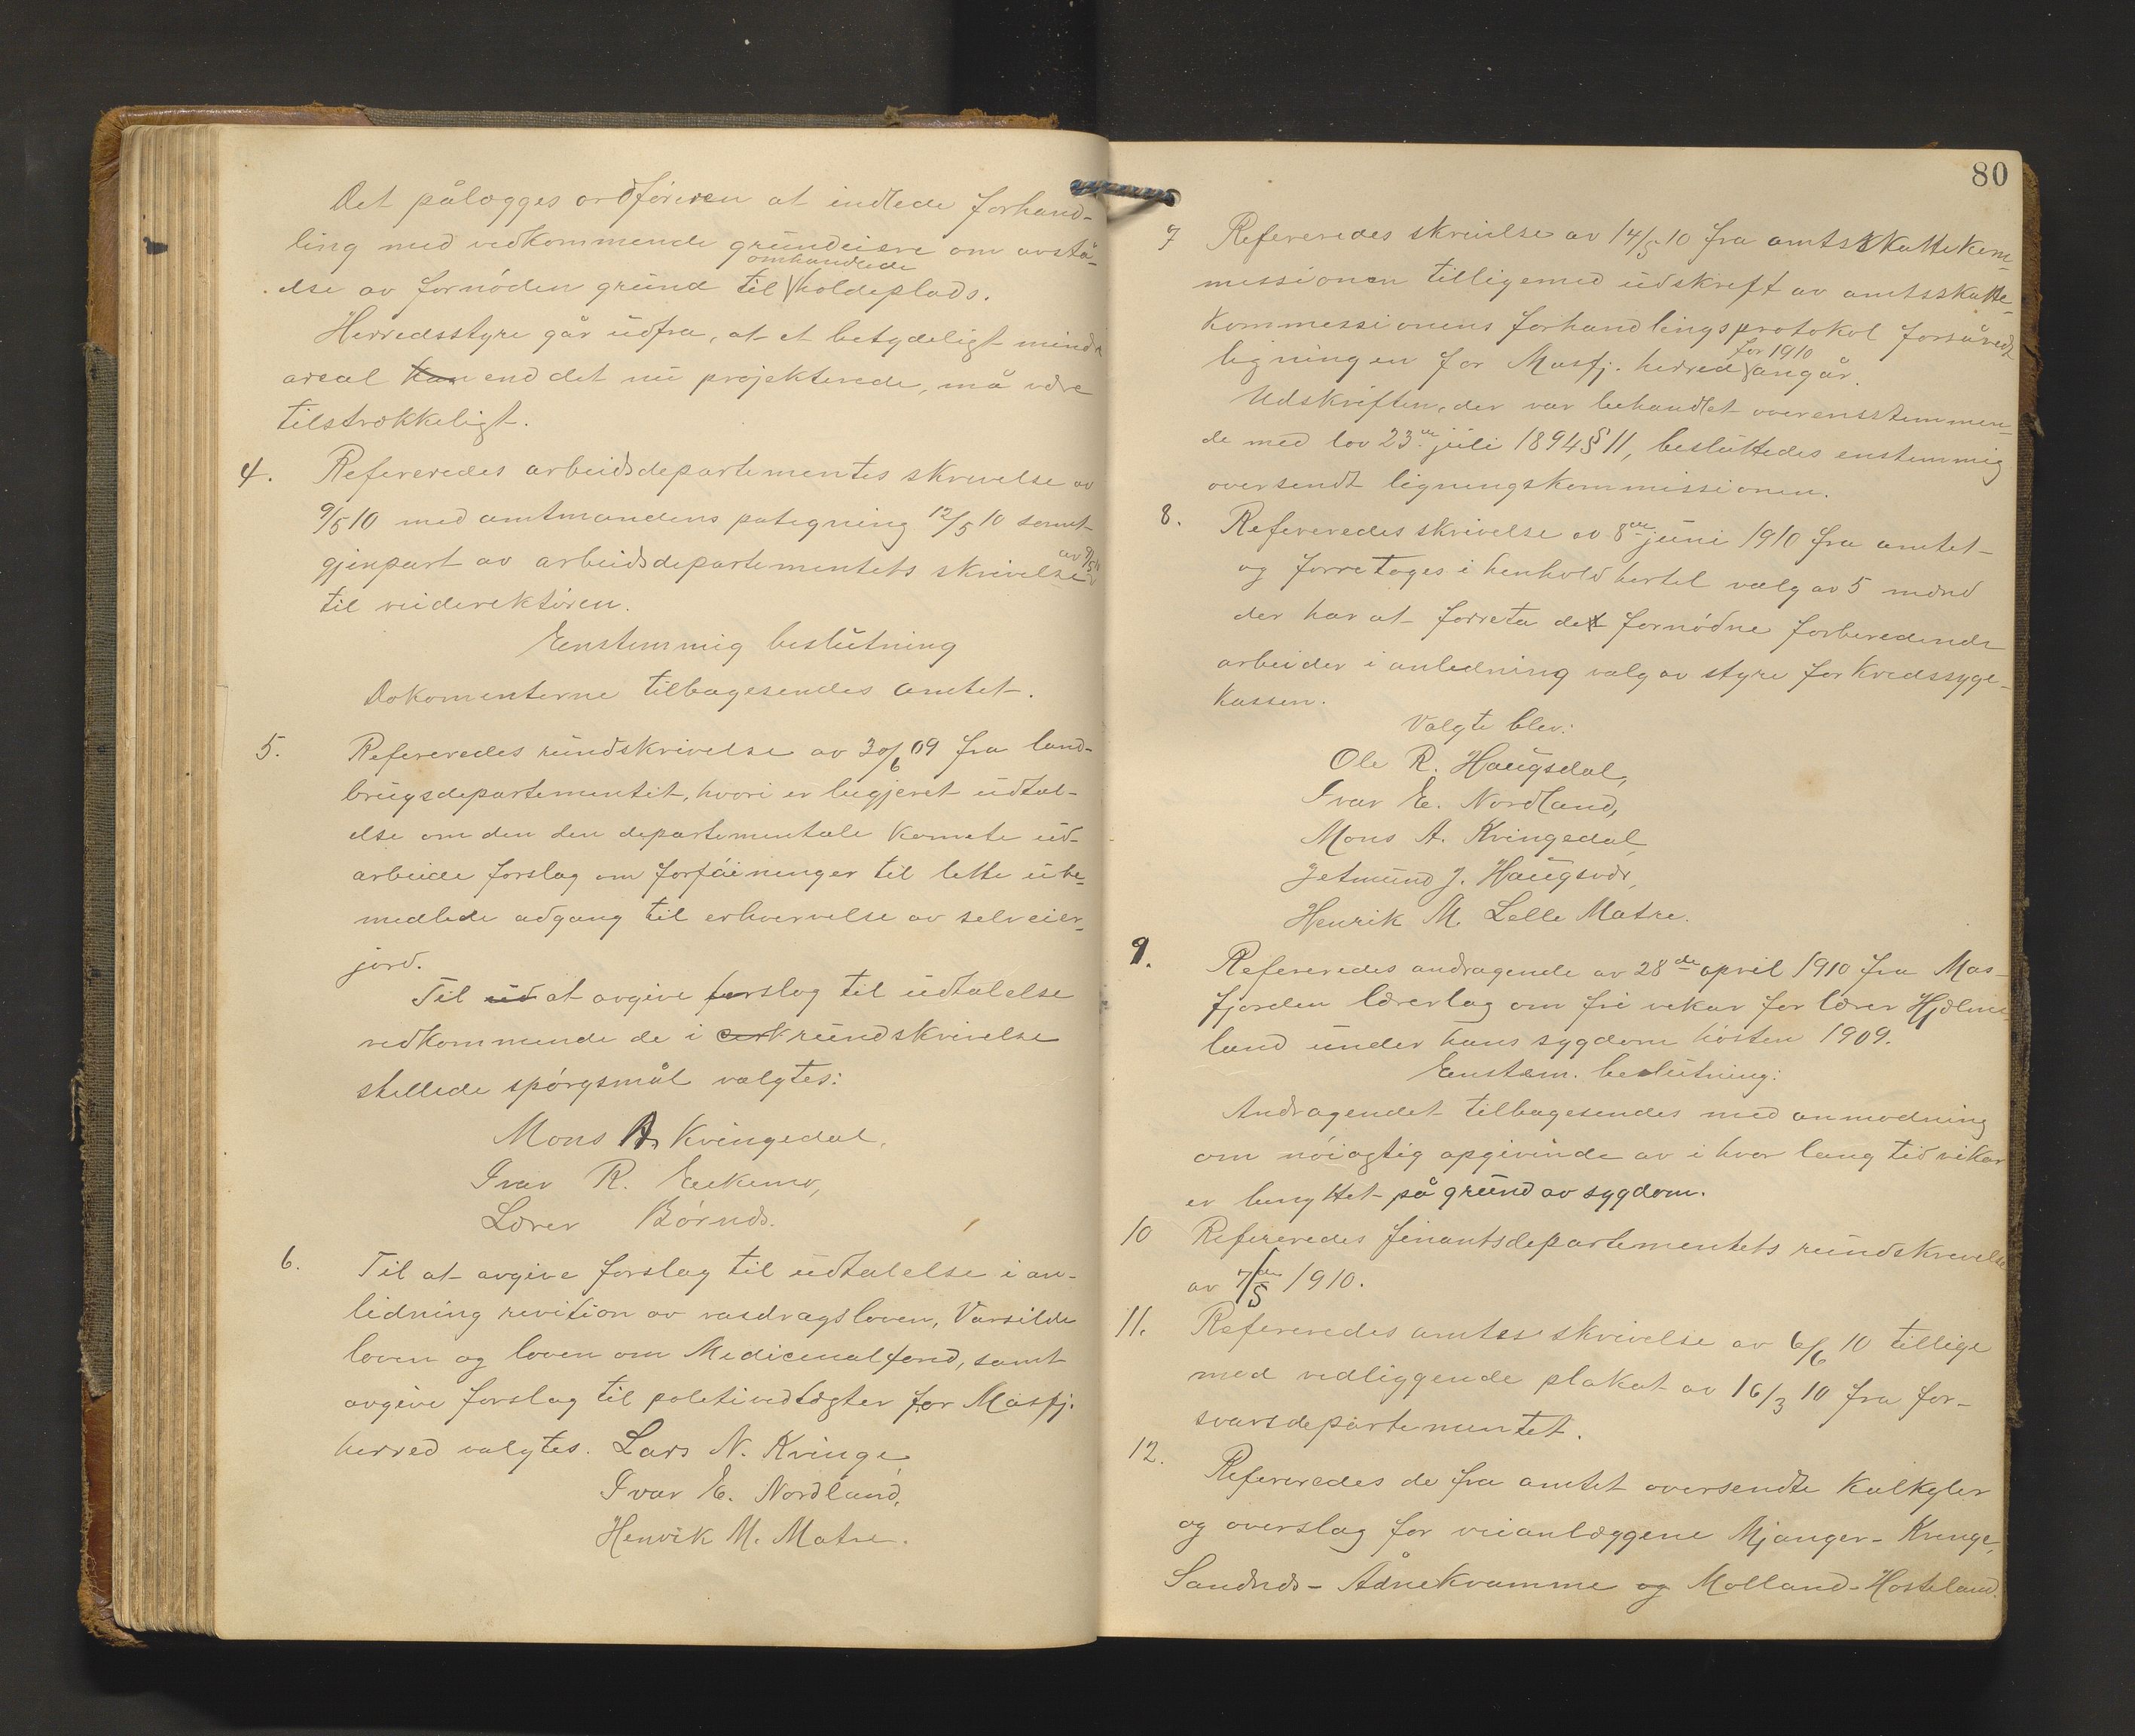 Det pålægges ordføreren at indlede forhand-
ling med vedkommende grundeiere om avstå-
else av fornøden grund til omhandlede holdeplads.
Herredsstyre går udfra, at et betydeligt mindre
areal kan end det nu projekterede, må være
tilstrækkeligt.
4. Refereredes arbeidsdepartementes skrivelse av
9/5 10 med amtmandens pategning 12/5 10 samt
gjenpart av arbeidsdepartementets skrivelse av 9/5 10
til veiderektøren.
Eenstemmig beslutning
Dokomenterne tilbagesendes amtet.
5. Refereredes rundskrivelse av 30/6 09 fra land-
brugsdepartementet, hvori er begjeret udtal-
else om den den departementale komete ud-
arbeide forslag om forføininger til lette ube-
medlede adgang til erhvervelse av selveier-
jord.
Til ud at avgive forslag til udtalelse
vedkommende de i rundskrivelse
stellede spørgsmål valgtes:
Mons A. Kvingedal,
Ivar R.
Lærer Børnes.
6. Til at avgive forslag til udtalelse i an-
ledning revition av vasdragsloven, Varsilde
loven og loven om Medicenalfond, samt
avgive forslag til politivedtægter for Masfj.
herred valgtes. Lars N. Kvinge,
Ivar E. Nordland,
Henrik M. Matre.
80
7 Refereredes skrivelse av 14/5 10 fra amtsskattekom-
messionen tilligemed udskreft av amtsskatte-
kommessionens forhandlingsprotokol forsåvedt
ligningen for Masfj. herred for 1910 angår.
Udskriften, der var behandlet overensstemmen-
de med lov 23de juli 1894 § 11, besluttedes enstemmig
oversendt ligningskommissionen.
8. Refereredes skrivelse av 8de juni 1910 fra amtet
og forretoges i henhold hertel valg av 5 mænd
der har at forreta det fornødne forberedende
arbeider i anledning valg av styre for kredssyge-
kassen.
Valgte blev:
Ole R. Haugsdal,
Ivar E. Nordland,
Mons A. Kvingedal,
Jetmund J. Haugsvær,
Henrik M. Lelle Matre.
9. Refereredes andragende av 28de april 1910 fra Mas-
fjorden lærerlag om fri vekar for lærer Hjelme-
land under hans sygdom høsten 1909.
Eenstem. beslutning:
Andragendet tilbagesendes med anmodning
om nøiagtig opgivende av i hvor lang tid vikar
er benyttet på grund av sygdom.
10 Refereredes finantsdepartementets rundskrivelse
av 7de/5 1910.
11. Refereredes amtes skrivelse av 6/6 10 tillige
med vedliggende plakat av 16/3 10 fra for-
svarsdepartementet.
12. Refereredes de fra amtet oversendte kalkyler
og overslag for veianlæggene Mjanger-Kvinge,
Sandnes-Ådnekvamme og Molland-Hosteland.